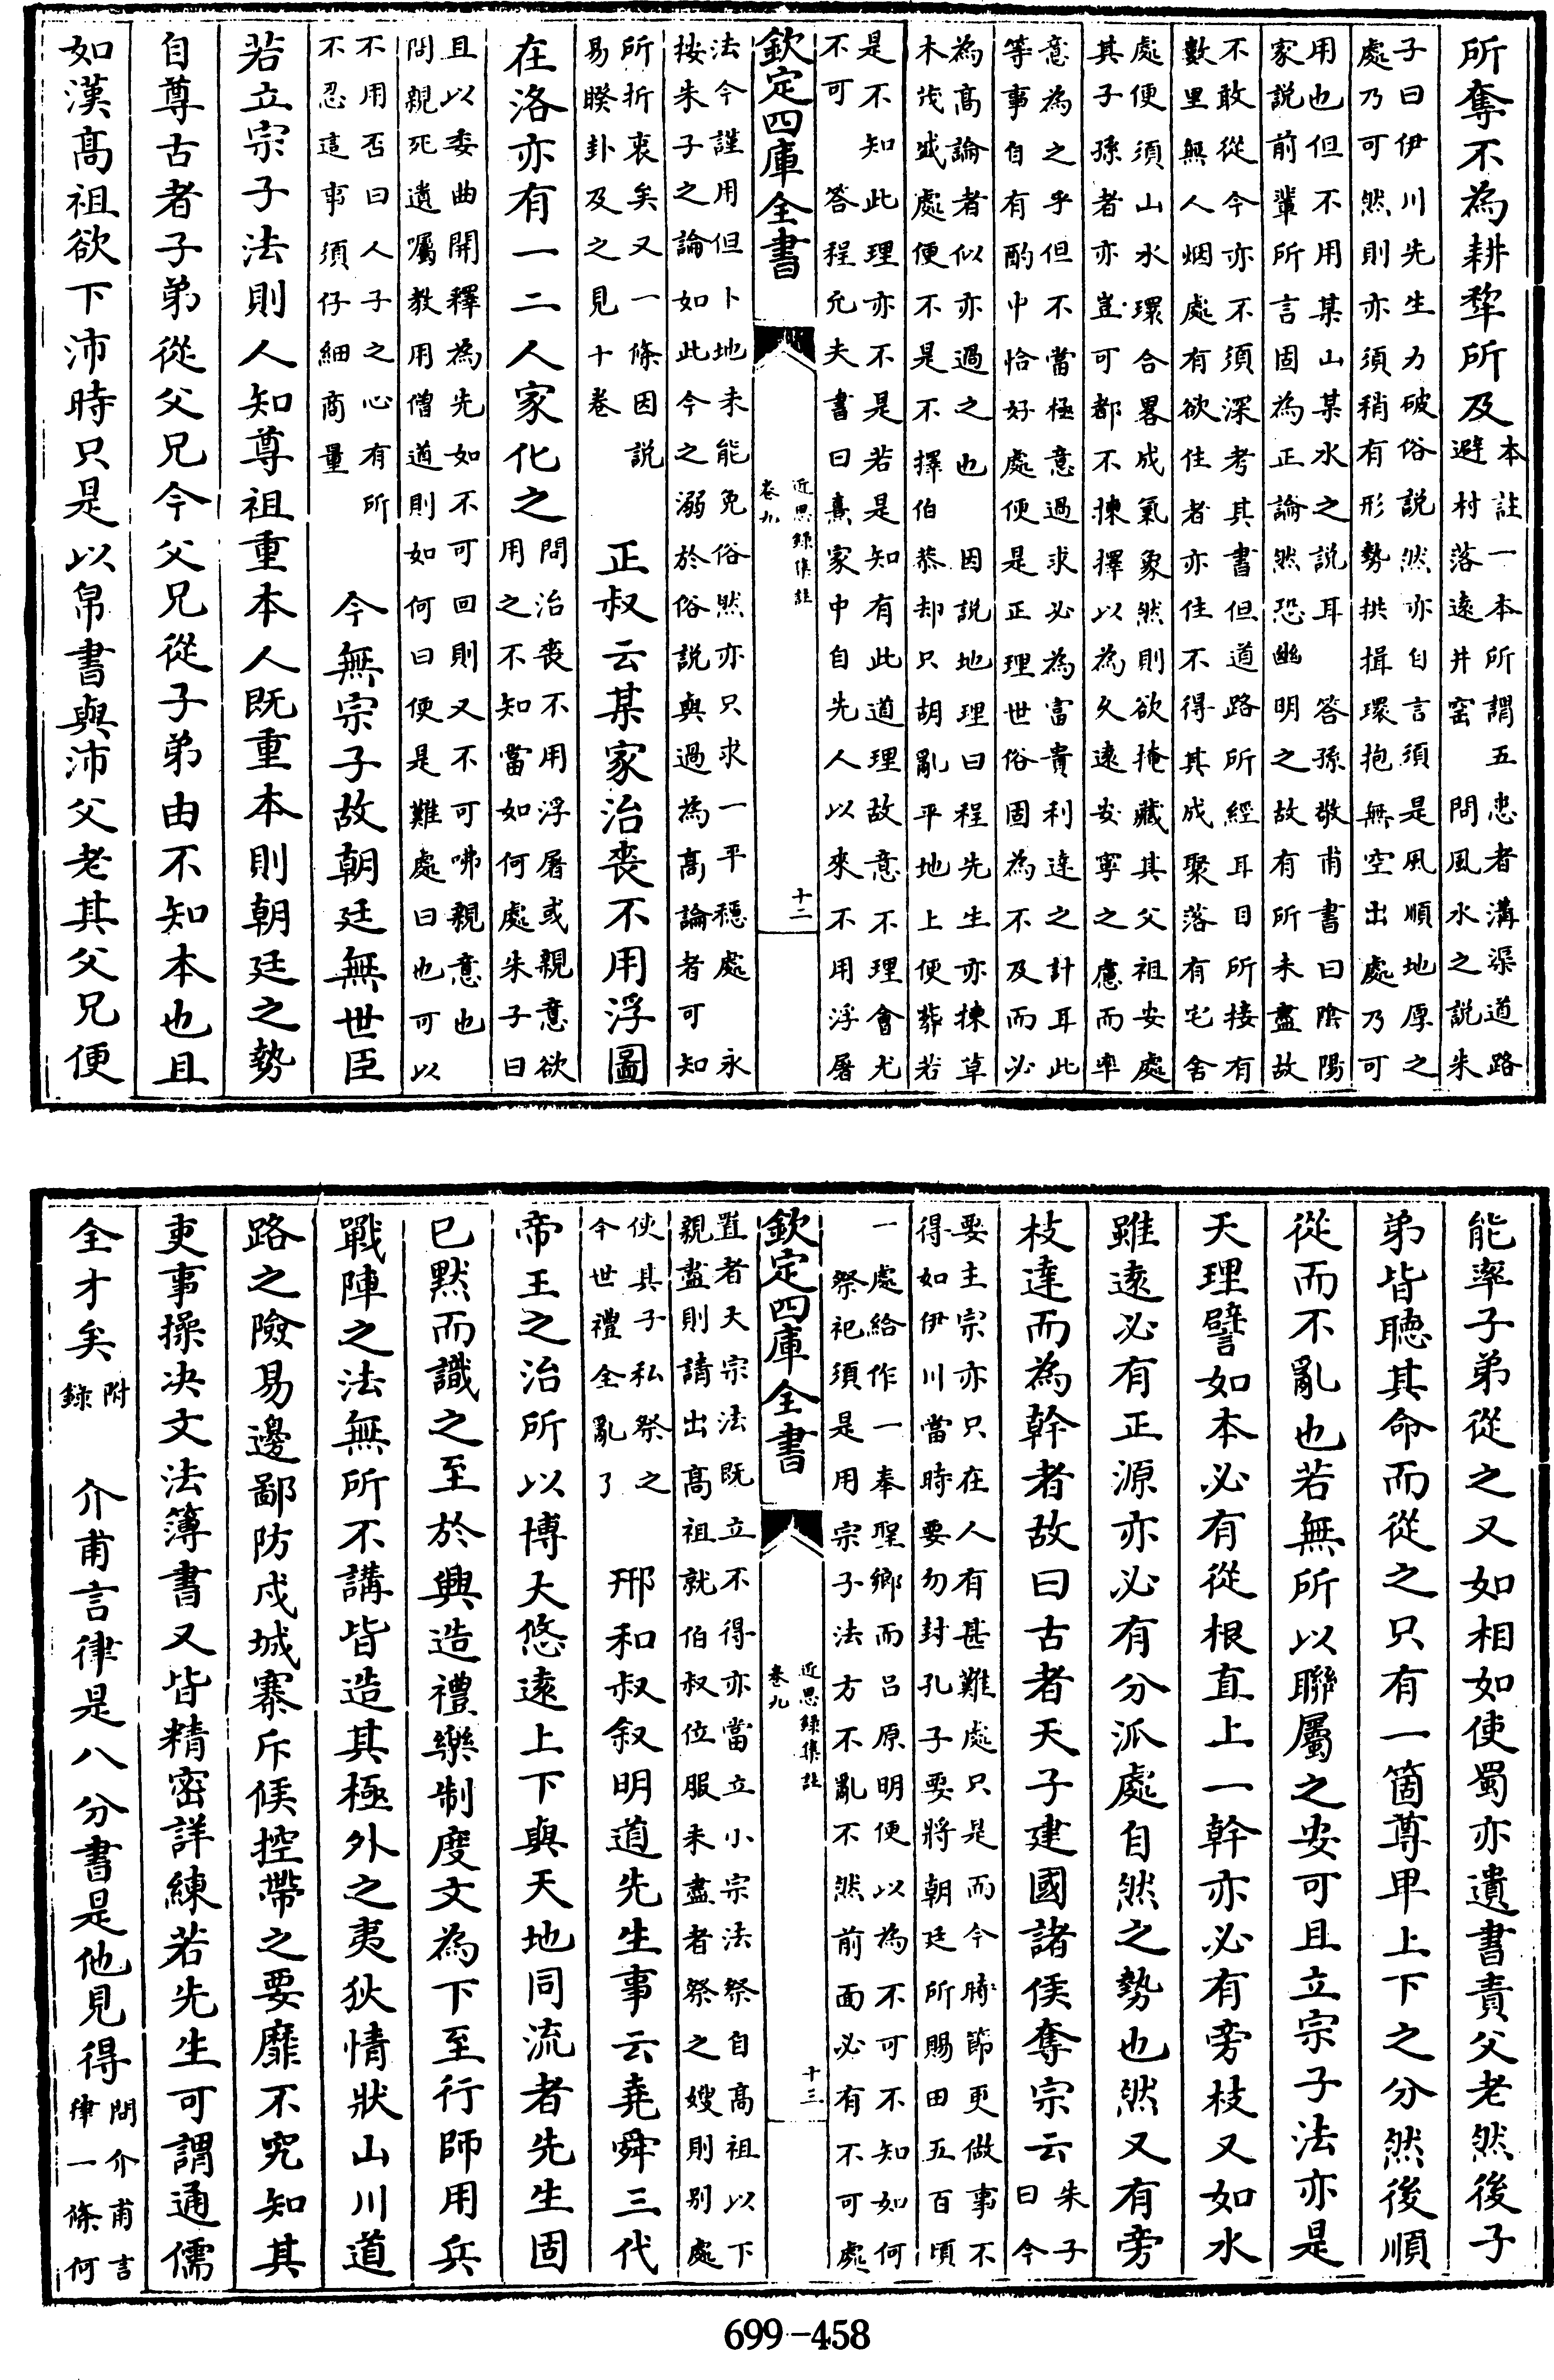 所奪不為耕犂所及本註一本所謂五患者溝渠道路
避村落遠井窰問風水之說朱
子曰伊川先生力破俗說然亦自言須是風順地厚之
處乃可然則亦須稍有形勢拱揖環抱無空出處乃可
用也但不用某山某水之說耳答孫敬甫書曰陰陽
家說前輩所言固為正論然恐幽明之故有所未盡故
不敢從今亦不須深考其書但道路所經耳目所接有
數里無人烟處有欲住者亦住不得其成聚落有宅舍
處便須山水環合畧成氣象然則欲掩藏其父祖安處
其子孫者亦豈可都不揀擇以為久遠安寧之慮而率
意為之乎但不當極意過求必為富貴利達之計耳此
等事自有酌中恰好處便是正理世俗固為不及而必
為高論者似亦過之也因說地理曰程先生亦揀草
木茂盛處便不是不擇伯恭却只胡亂平地上便葬若
是不知此理亦不是若是知有此道理故意不理會尤
不可答程允夫書曰熹家中自先人以來不用浮屠
欽定四庫全書
近思錄集註
卷九
十二
法今謹用但卜地未能免俗然亦只求一平穩處永
按朱子之論如此今之溺於俗說與過為高論者可知
所折衷矣又一條因說
易睽卦及之見十卷
正叔云某家治喪不用浮圖
在洛亦有一二人家化之問治喪不用浮屠或親意欲
用之不知當如何處朱子曰
且以委曲開釋為先如不可回則又不可咈親意也
問親死遺囑教用僧道則如何曰便是難處曰也可以
不用否曰人子之心有所
不忍這事須仔細商量
今無宗子故朝廷無世臣
若立宗子法則人知尊祖重本人既重本則朝廷之勢
自尊古者子弟從父兄今父兄從子弟由不知本也且
如漢高祖欲下沛時只是以帛書與沛父老其父兄便
能率子弟從之又如相如使蜀亦遺書責父老然後子
弟皆聽其命而從之只有一箇尊卑上下之分然後順
從而不亂也若無所以聯屬之安可且立宗子法亦是
天理譬如本必有從根直上一幹亦必有旁枝又如水
雖遠必有正源亦必有分派處自然之勢也然又有旁
枝達而為幹者故曰古者天子建國諸侯奪宗云朱子
曰今
要主宗亦只在人有甚難處只是而今時節更做事不
得如伊川當時要勿封孔子要將朝廷所賜田五百頃
一處給作一奉聖鄉而呂原明便以為不可不知如何
祭祀須是用宗子法方不亂不然前面必有不可處
欽定四庫全書
近思錄集註
卷九
十三
置者大宗法既立不得亦當立小宗法祭自高祖以下
親盡則請出高祖就伯叔位服未盡者祭之嫂則別處
使其子私祭之
今世禮全亂了
邢和叔叙明道先生事云堯舜三代
帝王之治所以博大悠遠上下與天地同流者先生固
已黙而識之至於興造禮樂制度文為下至行師用兵
戰陣之法無所不講皆造其極外之夷狄情狀山川道
路之險易邊鄙防戍城寨斥候控帶之要靡不究知其
吏事操决文法簿書又皆精密詳練若先生可謂通儒
全才矣附
錄
介甫言律是八分書是他見得問介甫言
律一條何